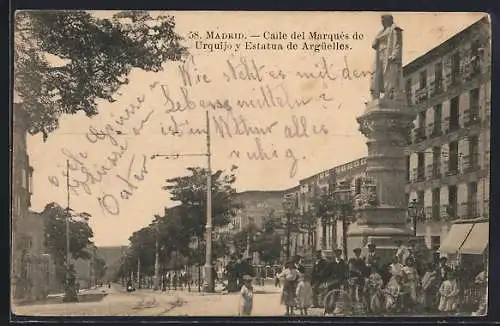 58. MADRID. — Calle del Marqués de
Urquijo y Estatua de Argüelles.
Wie steht es mit den
Lebensmitteln?
ist in Natur alles
ruhig.
Vater